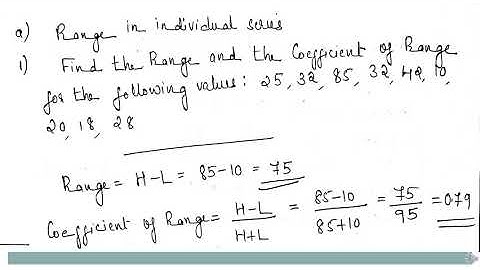 a) Range in individual series
1) Find the Range and the Coefficient of Range
for the following values: 25, 32, 85, 32, 42, 10,
20, 18, 28
Range = H-L = 85-10 = 75
Coefficient of Range = H-L / H+L = 85-10 / 85+10 = 75 / 95 = 0.79